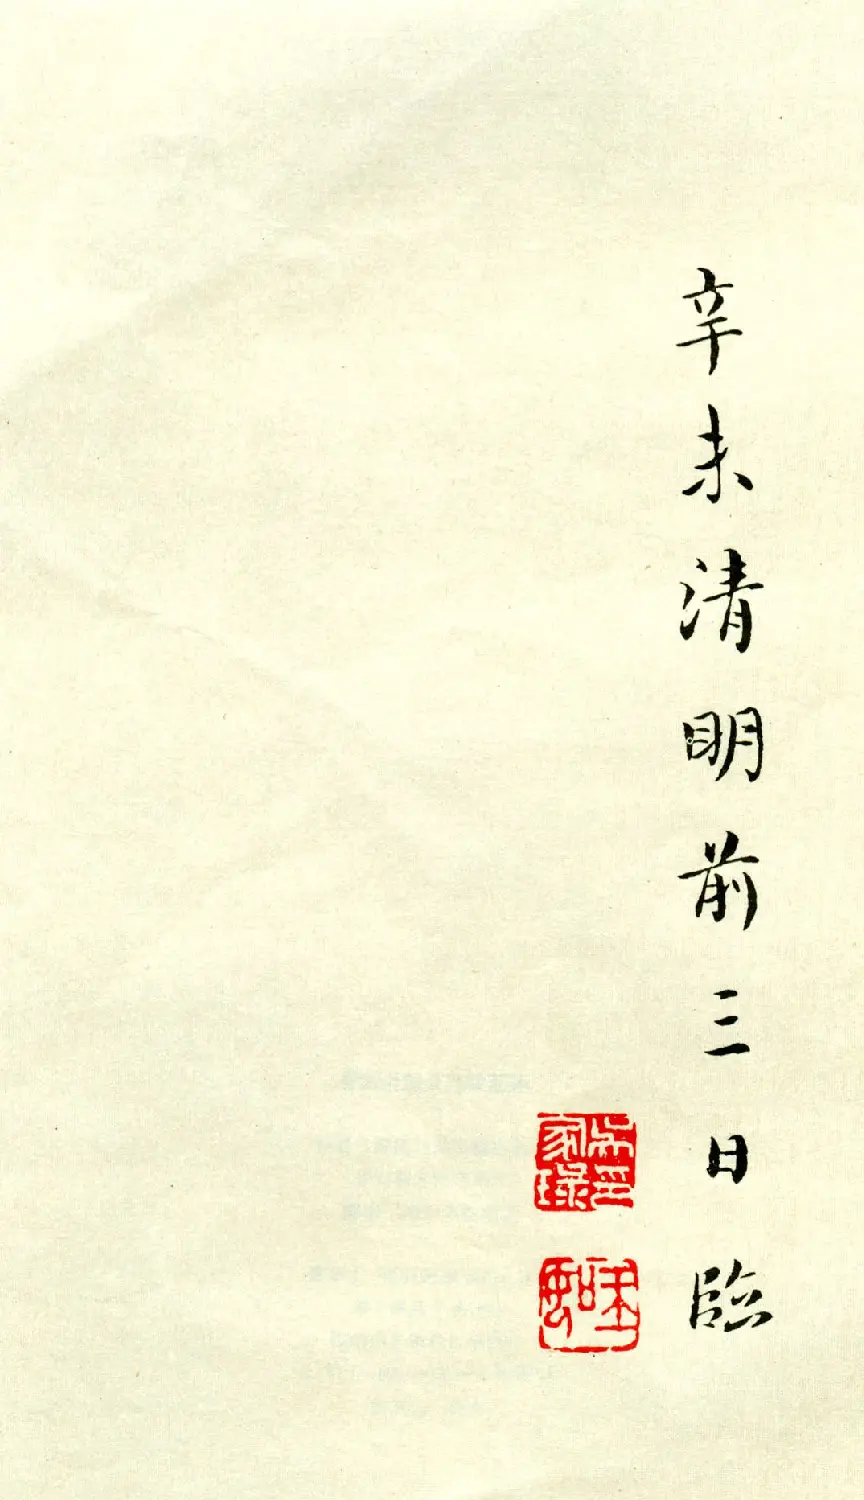 辛未清明前三日臨